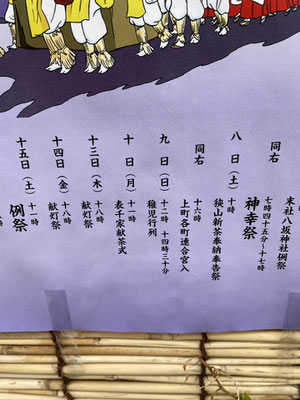 末社八坂神社例祭
同右 七時四十五分～十七時
神幸祭
八日（土） 十時
狭山新茶奉納奉告祭
同右 十六時
上町各町連合宮入
九日（日） 十二時 十四時三十分
稚児行列
十日（月） 十一時
表千家献茶式
十三日（木） 十八時
献灯祭
十四日（金） 十八時
献灯祭
十五日（土） 十一時
例祭